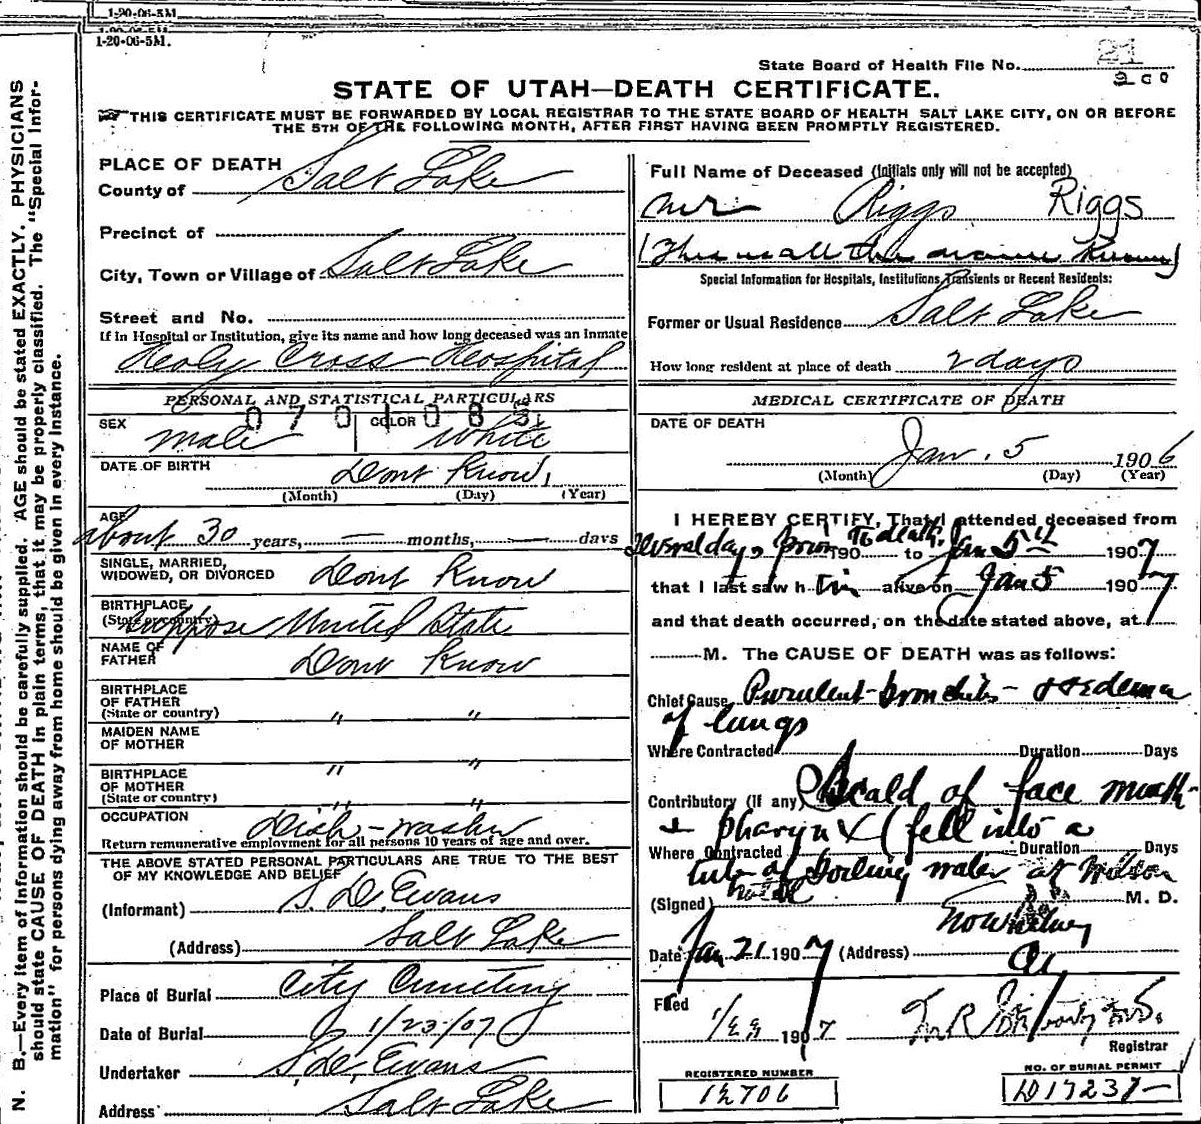 1-20-06-5M
1-20-06-5M.
State Board of Health File No. 21
200
STATE OF UTAH—DEATH CERTIFICATE.
THIS CERTIFICATE MUST BE FORWARDED BY LOCAL REGISTRAR TO THE STATE BOARD OF HEALTH SALT LAKE CITY, ON OR BEFORE
THE 5TH OF THE FOLLOWING MONTH, AFTER FIRST HAVING BEEN PROMPTLY REGISTERED.
N. B.—Every item of Information should be carefully supplied. AGE should be stated EXACTLY. PHYSICIANS
should state CAUSE OF DEATH in plain terms, that it may be properly classified. The "Special Infor-
mation" for persons dying away from home should be given in every instance.
PLACE OF DEATH
County of Salt Lake
Precinct of
City, Town or Village of Salt Lake
Street and No.
If in Hospital or Institution, give its name and how long deceased was an Inmate
Holy Cross Hospital
PERSONAL AND STATISTICAL PARTICULARS
0 7 0 1 0 8 5
SEX male COLOR White
DATE OF BIRTH Dont Know
(Month) (Day) (Year)
AGE
about 30 years, — months, — days
SINGLE, MARRIED,
WIDOWED, OR DIVORCED Dont Know
BIRTHPLACE
(State or country) Suppose United State
NAME OF
FATHER Dont Know
BIRTHPLACE
OF FATHER
(State or country) " "
MAIDEN NAME
OF MOTHER
" "
BIRTHPLACE
OF MOTHER
(State or country) " "
OCCUPATION Dish-washer
Return remunerative employment for all persons 10 years of age and over.
THE ABOVE STATED PERSONAL PARTICULARS ARE TRUE TO THE BEST
OF MY KNOWLEDGE AND BELIEF
(Informant) S. D. Evans
(Address) Salt Lake
Place of Burial City Cemetery
Date of Burial 1/23/07
Undertaker S. D. Evans
Address Salt Lake
Full Name of Deceased (Initials only will not be accepted)
Mr Riggs Riggs
(This is all the name Known)
Special Information for Hospitals, Institutions, Transients or Recent Residents:
Former or Usual Residence Salt Lake
How long resident at place of death 2 days
MEDICAL CERTIFICATE OF DEATH
DATE OF DEATH
Jan. 5 1906
(Month) (Day) (Year)
I HEREBY CERTIFY, That I attended deceased from
Several days prior To death, 190 to Jan 5th 1907
that I last saw h im alive on Jan 5 1907
and that death occurred, on the date stated above, at
M. The CAUSE OF DEATH was as follows:
Chief Cause Purulent-bronchitis - oedema
of lungs
Where Contracted Duration Days
Contributory (If any) Scald of face mouth
+ pharynx (fell into a
Where Contracted Duration Days
tub of boiling water at Wilson
(Signed) M. D.
Date Jan 21 1907 (Address)
Filed 1/23 1907
Registrar
REGISTERED NUMBER
12706
NO. OF BURIAL PERMIT
D17237-